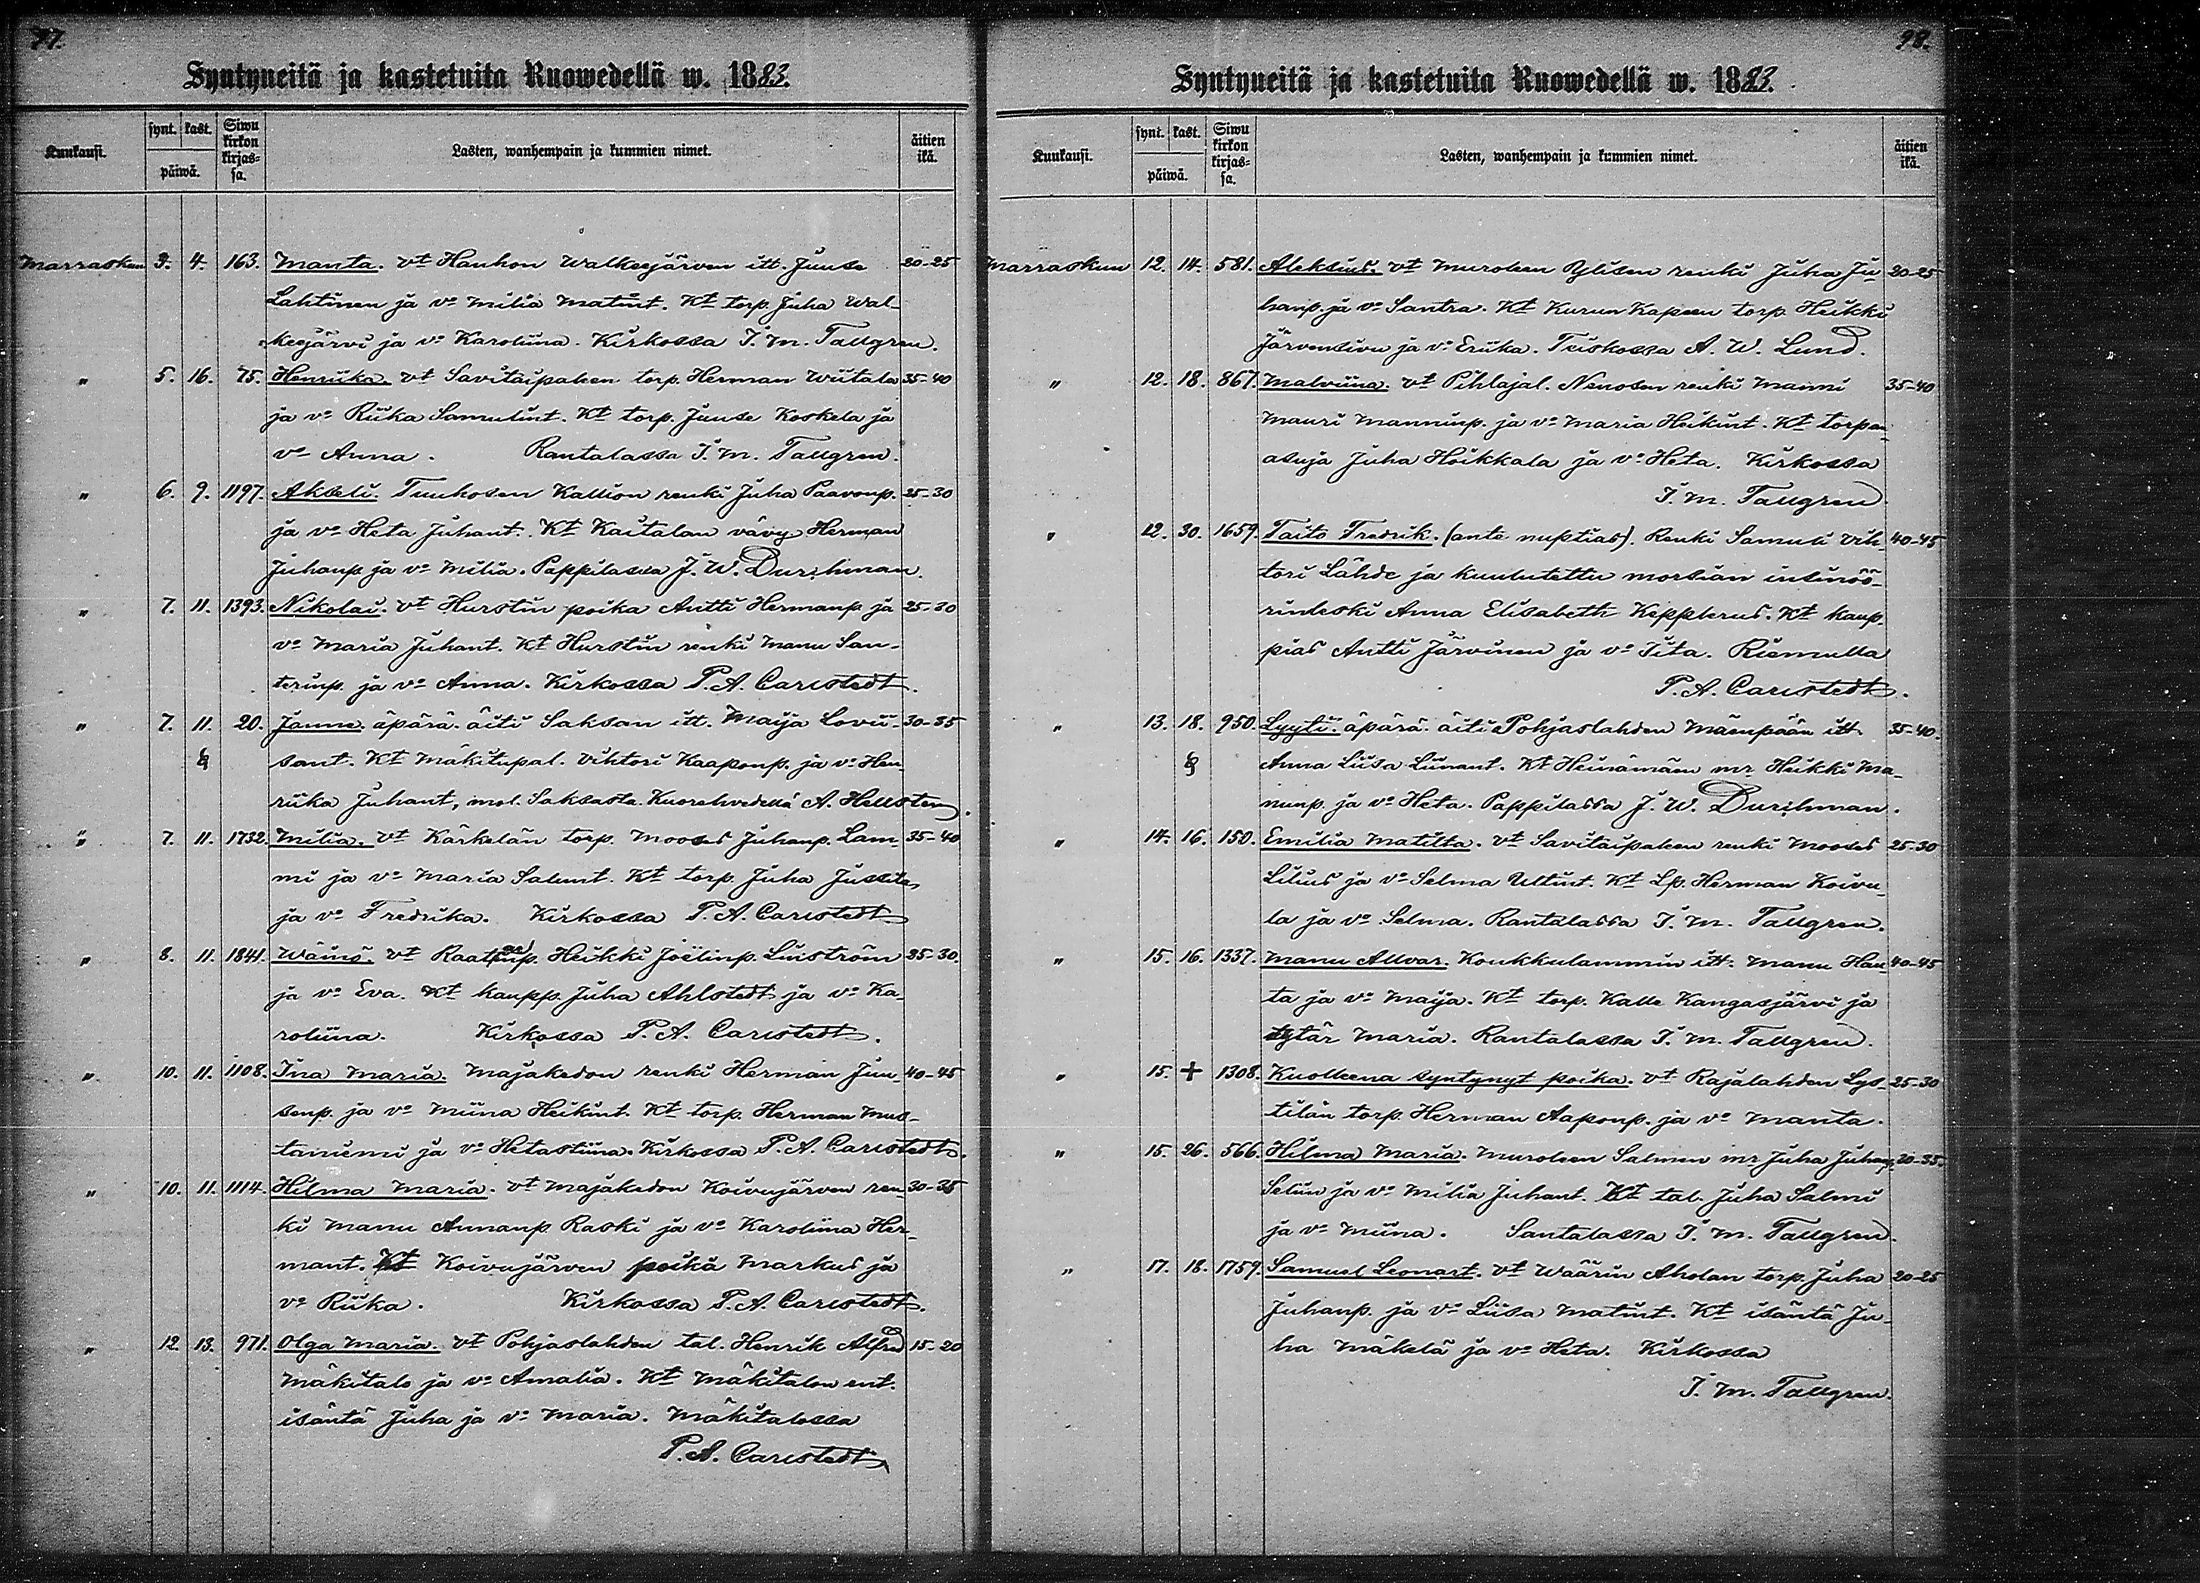 77.
Syntyneitä ja kastetuita Ruowedellä w. 1883.
Kuukausi.
synt. kast.
päiwä.
Siwu kirkon kirjas=sa.
Lasten, wanhempain ja kummien nimet.
äitien ikä.
Marraskun 3. 4. 163. Manta. vt Hauhon Walkeejärven itt. Juuse 20-25
Lahtinen ja vo Milia Matint. Kt torp. Juha Wal-
keejärvi ja vo Karoliina. Kirkossa I. M. Tallgren.
" 5. 16. 75. Henriika. vt Savitaipaleen torp. Herman Wiitala 35-40
ja vo Riika Samulint. Kt torp. Juuse Koskela ja
vo Anna. Rantalassa I. M. Tallgren.
" 6. 9. 1197. Akseli. Tuuhosen Kallion renki Juha Paavonp. 25-30
ja vo Heta Juhant. Kt Kaitalan vävy Herman
Juhanp ja vo Milia. Pappilassa J. W. Durchman.
" 7. 11. 1393. Nikolai. vt Hurstin poika Antti Hermanp. ja 25-30
vo Maria Juhant. Kt Hurstin renki Manu San-
terinp. ja vo Anna. Kirkossa P. A. Carlstedt.
" 7. 11. 20. Janne. äpärä. äiti Saksan itt. Maija Lovii- 30-35
§ sant. Kt mäkitupal. Vihtori Kaaponp. ja vo Hen-
riika Juhant, mol. Saksasta. Kuorehvedellä A. Hellsten.
" 7. 11. 1732. Milia. vt Kärkelän torp. Mooses Juhanp. Lam- 35-40
mi ja vo Maria Salomt. Kt torp. Juha Jussila
ja vo Fredrika. Kirkossa P. A. Carlstedt
" 8. 11. 1841. Wäinö. vt Heikki Joelinp. Liiström 25-30.
ja vo Eva. Kt kaupp. Juha Ahlstedt ja vo Ka-
roliina. Kirkossa P. A. Carlstedt.
" 10. 11. 1108. Ina Maria. Majakedon renki Herman Juu- 40-45
senp. ja vo Miina Heikint. Kt torp. Herman Mus-
taniemi ja vo Hetastiina. Kirkossa P. A. Carlstedt.
" 10. 11. 1114. Hilma Maria. vt Majakedon Koivujärven ren- 30-35
ki Manu Annanp Raski ja vo Karoliina Her-
mant. Kt Koivujärven poika Markus ja
vo Riika. Kirkossa P. A. Carlstedt.
" 12. 13. 971. Olga Maria. vt Pohjaslahden tal. Henrik Alfred 15-20
Mäkitalo ja vo Amalia. Kt Mäkitalon ent.
isäntä Juha ja vo Maria. Mäkitalossa
P. A. Carlstedt
98.
Syntyneitä ja kastetuita Ruowedellä w. 1883.
Kuukausi.
synt. kast.
päiwä.
Siwu kirkon kirjas=sa.
Lasten, wanhempain ja kummien nimet.
äitien ikä.
Marraskun 12. 14. 581. Aleksius. vt Muroleen Ylisen renki Juha Ju- 20-25
hanp. ja vo Santra. Kt Kurun Kapeen torp. Heikki
Järvensivu ja vo Eriika. Teiskossa A. W. Lund.
" 12. 18. 867. Malviina. vt Pihlajal. Nenosen renki 35-40
Mauri Manninp. ja vo Maria Heikint. Kt torpan
asuja Juha Hoikkala ja vo Heta. Kirkossa
I. M. Tallgren
" 12. 30. 1659. Taito Fredrik. (ante nuptias). Renki Samuli Vih- 40-45
tori Lähde ja kuulutettu morsian insinöö-
rinleski Anna Elisabeth Kepplerus. Kt kaup-
pias Antti Järvinen ja vo Iita. Riemulla
P. A. Carlstedt.
" 13. 18. 950. Lyyti. äpärä. äiti Pohjaslahden Mäenpään itt. 35-40.
§ Anna Liisa Liinant. Kt Heinämäen mr Heikki Ma-
nunp. ja vo Heta. Pappilassa J. W. Durchman.
" 14. 16. 150. Emilia Matilta. vt Savitaipaleen renki Mooses 25-30
Lilius ja vo Selma Ultint. Kt Lp. Herman Koivu-
la ja vo Selma. Rantalassa I. M. Tallgren.
" 15. 16. 1337. Manu Allvar. Koukkulammin itt. Manu Hau- 40-45
ta ja vo Maija. Kt torp. Kalle Kangasjärvi ja
tytär Maria. Rantalassa I. M. Tallgren.
" 15. + 1308. Kuolleena syntynyt poika. vt Rajalahden Lys- 25-30
tilän torp. Herman Aaponp. ja vo Manta.
" 15. 26. 566. Hilma Maria. Muroleen Salmen mr Juha Juhanp. 30-35.
Selin ja vo Milia Juhant. Kt tal. Juha Salmi
ja vo Miina. Santalassa I. M. Tallgren.
" 17. 18. 1759. Samuel Leonart. vt Wäärin Aholan torp. Juha 20-25
Juhanp. ja vo Liisa Matint. Kt isäntä Ju-
ha Mäkelä ja vo Heta. Kirkossa
I. M. Tallgren.